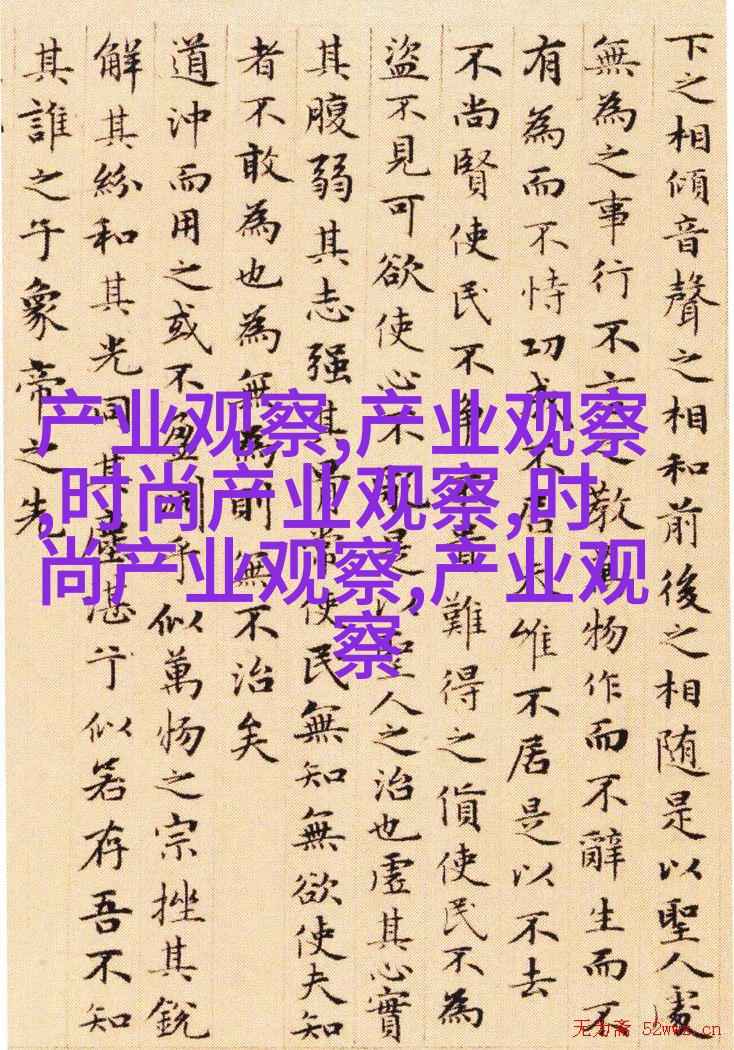 下之相傾音聲之相和前後之相随是以聖人處
無為之事行不言之教萬物作而不辭生而不
有為而不恃功成不居夫惟不居是以不去
不尚賢使民不争不貴難得之貨使民不為
盜不見可欲使心不是以聖人之治也虛其心實
其腹弱其志强其骨常使民無知無欲使夫知
者不敢為也為無為則無不治矣
道沖而用之或不盈乎似萬物之宗挫其銳
解其紛和其光同其塵湛兮似若存吾不知
其誰之子象帝之先
产业观察,产业观察
,时尚产业观察,时
尚产业观察,产业观
察
无为斋 52wwz.cn